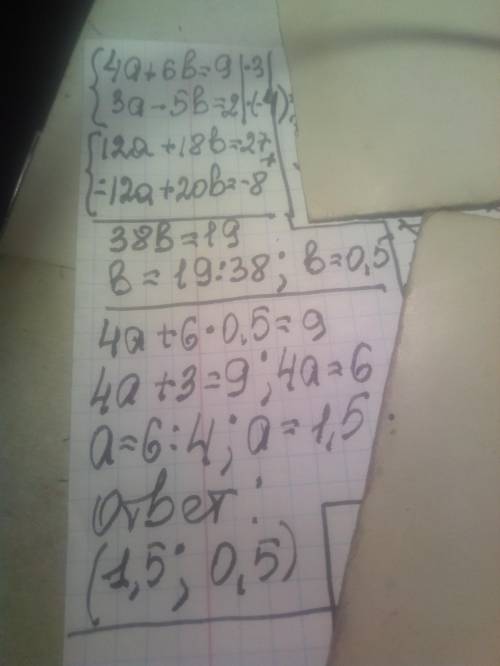 4a+6b=9|·3|
3a-5b=2|·(-4)
12a+18b=27
-12a+20b=-8
38b=19
b=19:38; b=0,5
4a+6·0,5=9
4a+3=9; 4a=6
a=6:4; a=1,5.
Ответ:
(1,5; 0,5)